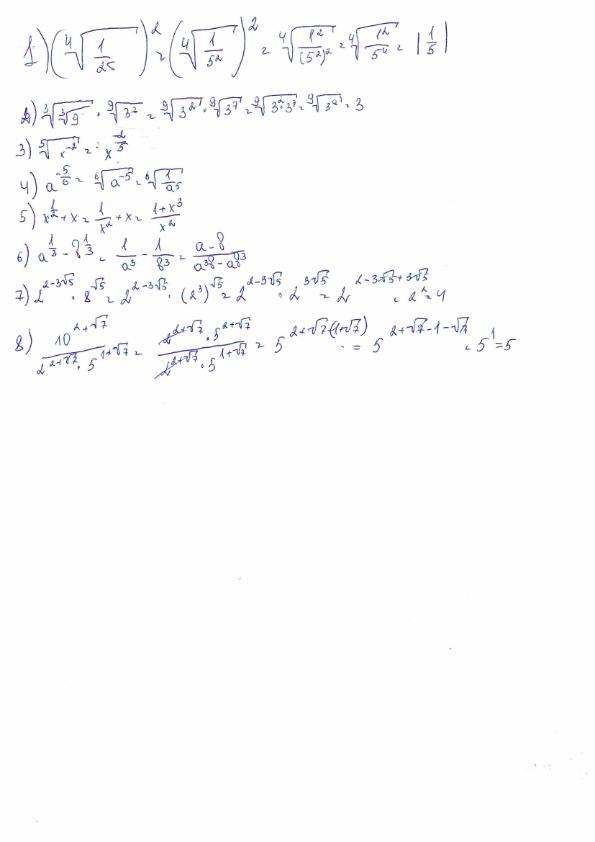 1) (⁴√(1/25))² = (⁴√(1/5²))² = ⁴√(1²/(5²)²) = ⁴√(1²/5⁴) = |1/5|
2) ³√(³√9) · ⁹√(3⁷) = ⁹√(3²) · ⁹√(3⁷) = ⁹√(3²·3⁷) = ⁹√(3⁹) = 3
3) ⁵√(x⁻²) = x^(-2/5)
4) a^(-5/6) = ⁶√(a⁻⁵) = ⁶√(1/a⁵)
5) x^(1/2) + x = 1/x² + x = (1+x³)/x²
6) a^(1/3) - b^(1/3) = 1/a³ - 1/b³ = (a-b)/(a³b - ab³)
7) 2^(2-3√5) · 8^(√5) = 2^(2-3√5) · (2³)^(√5) = 2^(2-3√5) · 2^(3√5) = 2^(2-3√5+3√5) = 2² = 4
8) 10^(2+√7) / (2^(2+√7) · 5^(1+√7)) = (2^(2+√7) · 5^(2+√7)) / (2^(2+√7) · 5^(1+√7)) = 5^(2+√7-(1+√7)) = 5^(2+√7-1-√7) = 5¹ = 5